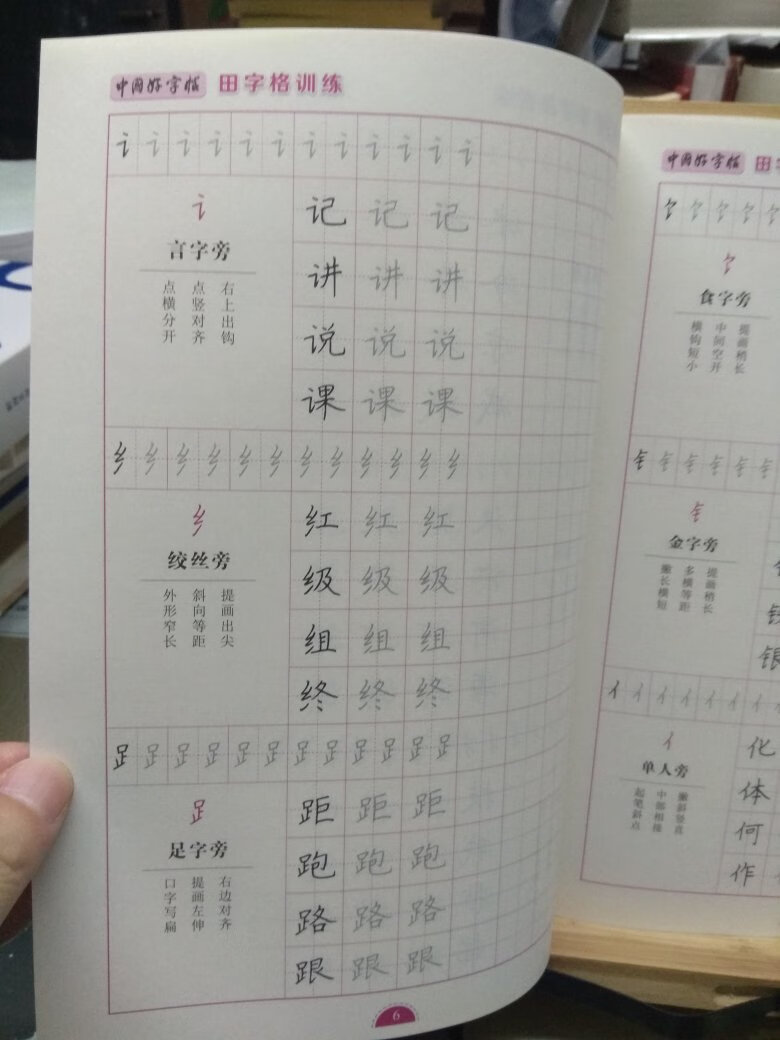 中国好字帖 田字格训练
讠 讠 讠 讠 讠 讠 讠 讠 讠 讠 讠 讠
讠
言字旁
点横分开
点竖对齐
右上出钩
记 记 记
讲 讲 讲
说 说 说
课 课 课
纟 纟 纟 纟 纟 纟 纟 纟 纟 纟 纟 纟
纟
绞丝旁
外形窄长
斜向等距
提画出尖
红 红 红
级 级 级
组 组 组
终 终 终
𧾷 𧾷 𧾷 𧾷 𧾷 𧾷 𧾷 𧾷 𧾷 𧾷 𧾷 𧾷
𧾷
足字旁
口字写扁
提画左伸
右边对齐
距 距 距
跑 跑 跑
路 路 路
跟 跟 跟
6
中国好字帖 田
饣 饣 饣 饣 饣
饣
食字旁
横钩短小
中间空开
提画稍长
钅 钅 钅 钅 钅 钅
钅
金字旁
撇长横短
多横等距
提画稍长
银
亻 亻 亻 亻 亻 亻
亻
单人旁
起笔斜点
中部相接
撇斜竖直
化
体
何
作